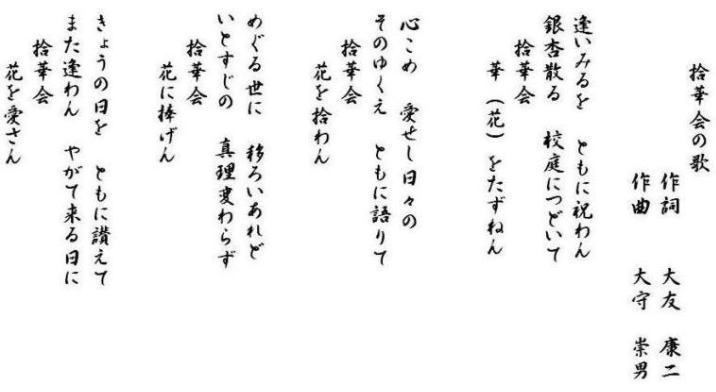 拾華会の歌
作詞 大友 康二
作曲 大守 崇男
逢いみるを ともに祝わん
銀杏散る 校庭につどいて
拾華会
華(花)をたずねん
心こめ 愛せし日々の
そのゆくえ ともに語りて
拾華会
花を拾わん
めぐる世に 移ろいあれど
いとすじの 真理変わらず
拾華会
花に捧げん
きょうの日を ともに讃えて
また逢わん やがて来る日に
拾華会
花を愛さん